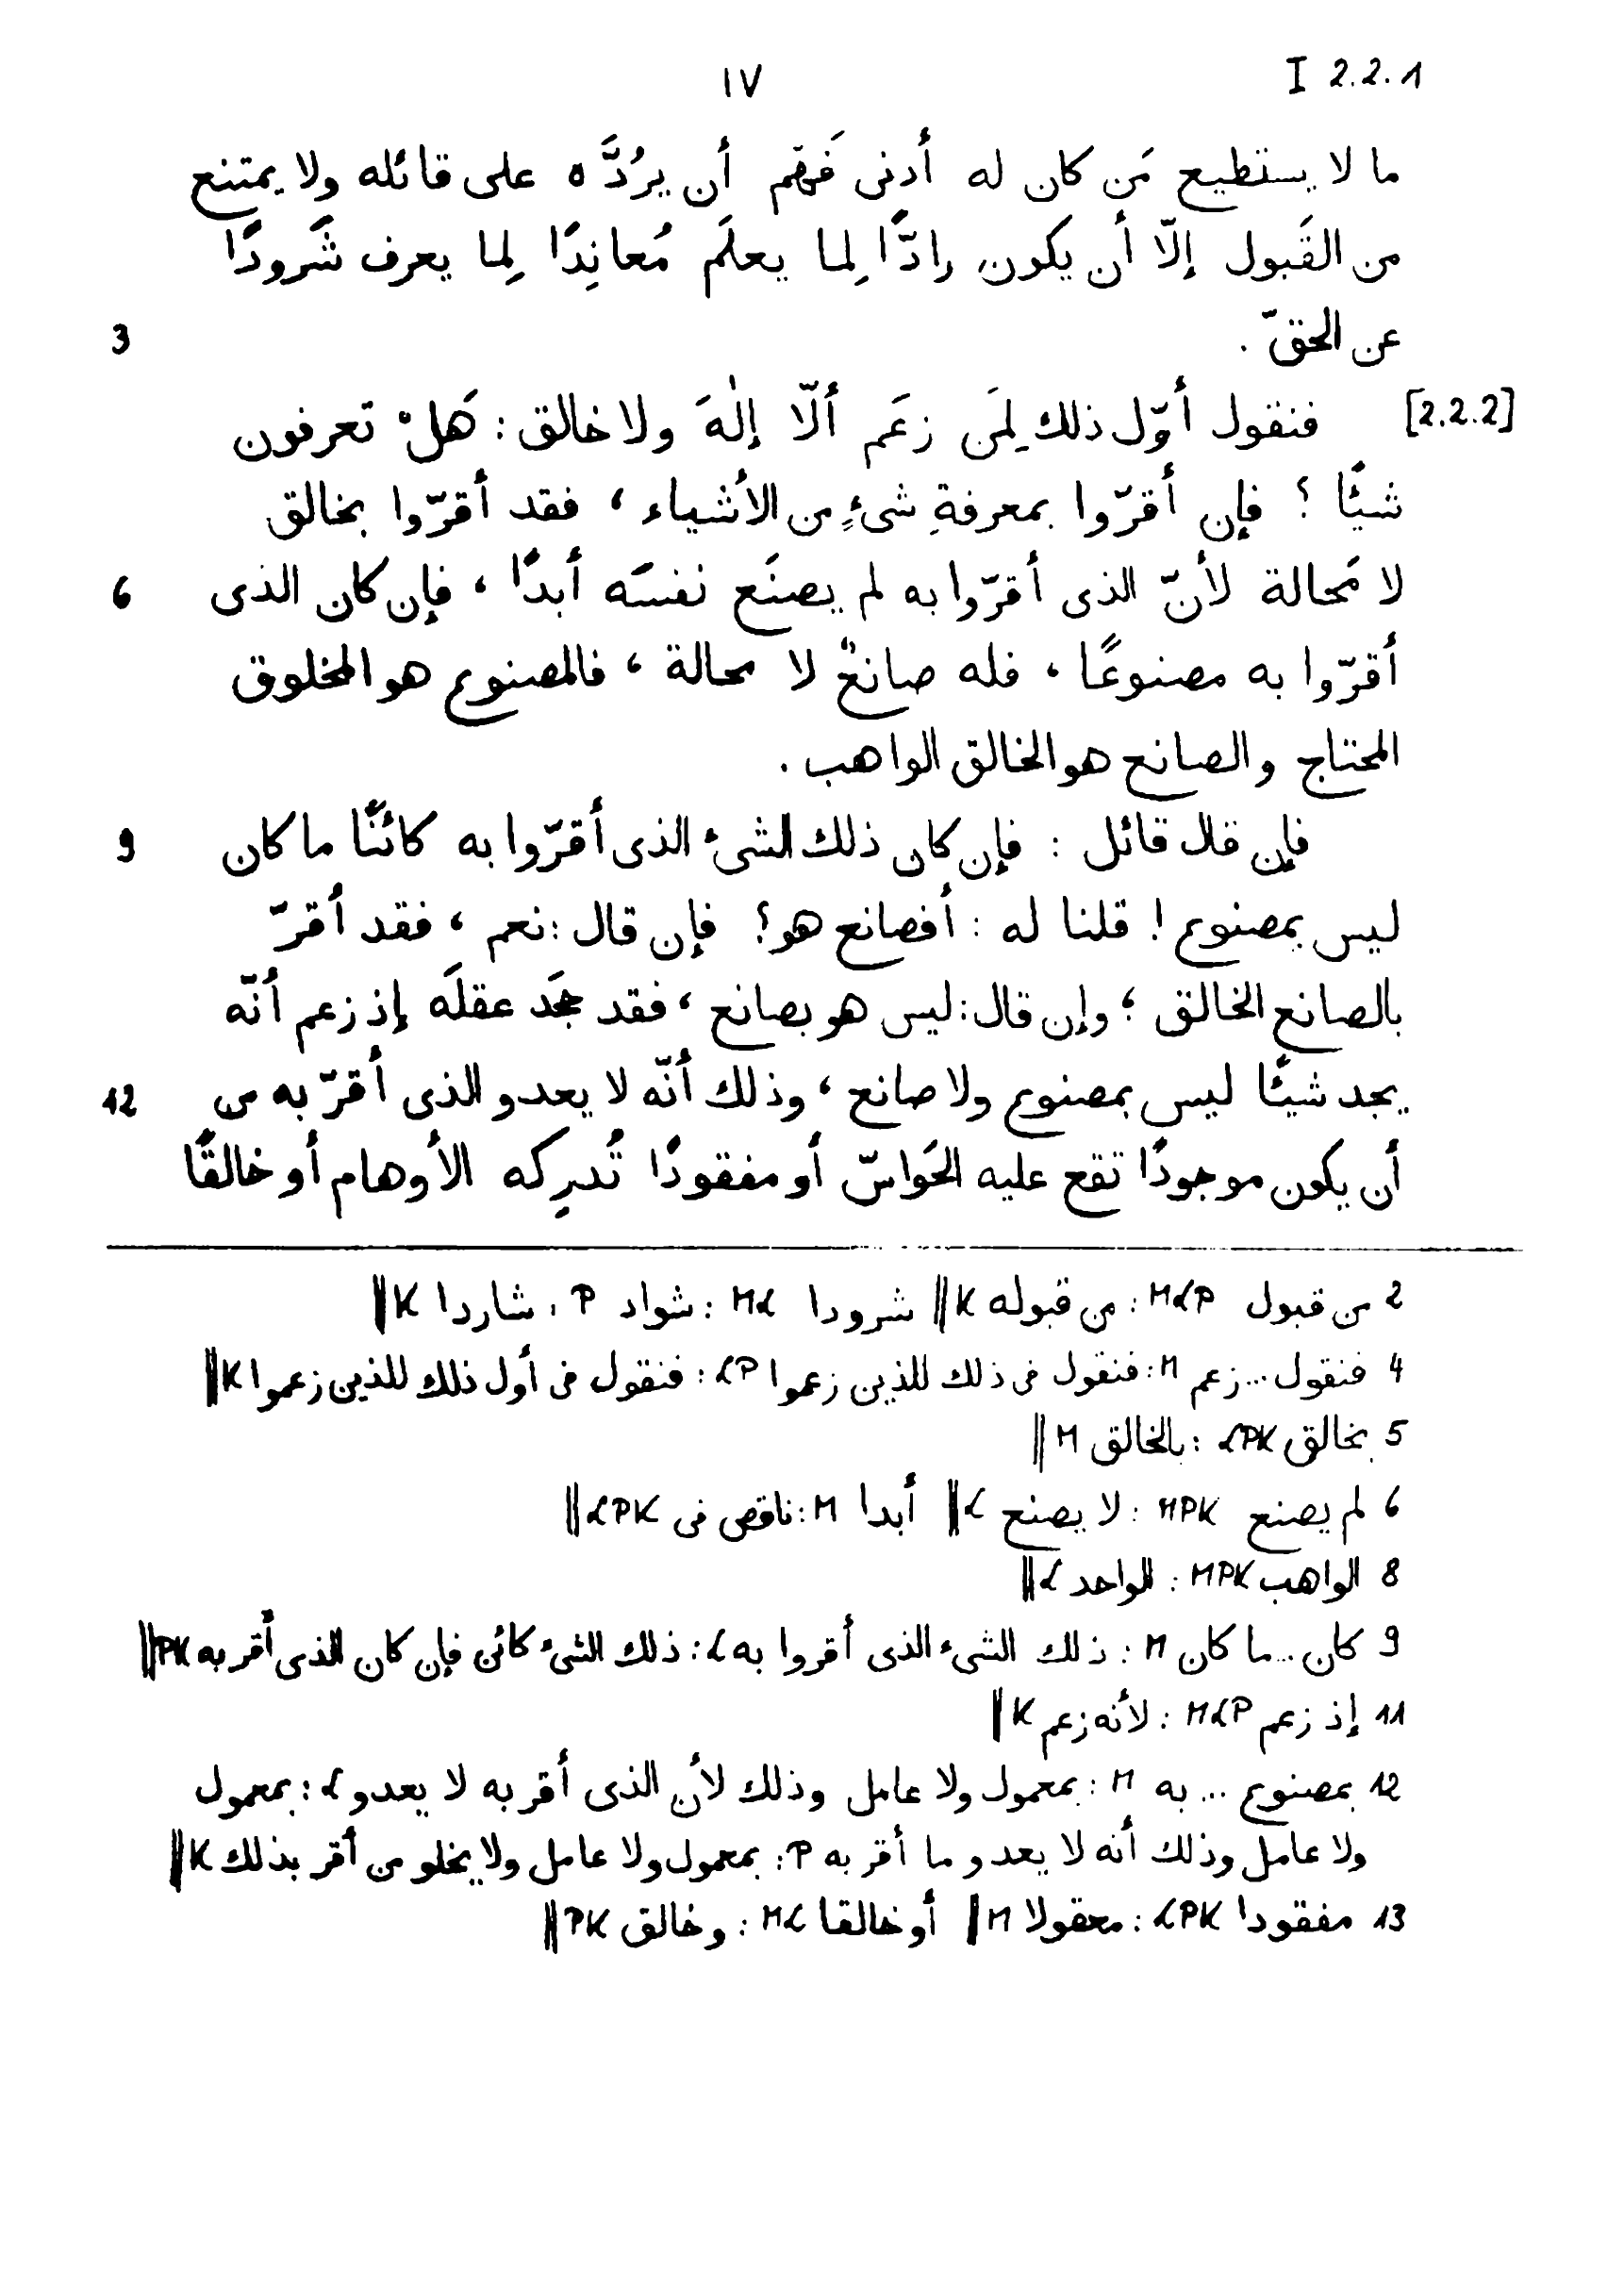 I 2.2.1
١٧
ما لا يستطيع مَن كان له أدنى فَهْم أن يرُدَّه على قائله ولا يمتنع
من القَبول إلّا أن يكون رادًّا لِما يعلَم مُعانِدًا لِما يعرف شَرودًا
عن الحقّ . 3
[2.2.2] فنقول أوّل ذلك لِمَن زعَم ألّا إلٰهَ ولا خالق : هَلْ تعرفون
شيئًا ؟ فإن أقرّوا بمعرفةِ شىءٍ من الأشياء ، فقد أقرّوا بخالق
لا مَحالة لأنّ الذى أقرّوا به لم يصنَع نفسَه أبدًا ، فإن كان الذى 6
أقرّوا به مصنوعًا ، فله صانعٌ لا محالة ، فالمصنوع هو المخلوق
المحتاج والصانع هو الخالق الواهب .
فإن قال قائل : فإن كان ذلك الشىء الذى أقرّوا به كائنًا ما كان 9
ليس بمصنوع ! قلنا له : أفصانع هو ؟ فإن قال : نعم ، فقد أقرّ
بالصانع الخالق ؛ وإن قال : ليس هو بصانع ، فقد جحَد عقلَه إذ زعم أنّه
يجد شيئًا ليس بمصنوع ولا صانع ، وذلك أنّه لا يعدو الذى أقرّ به من 12
أن يكون موجودًا تقع عليه الحَواسّ أو مفقودًا تُدرِكه الأوهام أو خالقًا
2 من قبول MLP : من قبوله K || شرودا ML : شواد P ، شاردا K ||
4 فنقول ... زعم M : فنقول فى ذلك للذين زعموا LP : فنقول فى أول ذلك للذين زعموا K ||
5 بخالق LPK : بالخالق M ||
6 لم يصنع MPK : لا يصنع L || أبدا M : ناقص فى LPK ||
8 الواهب MPK : الواحد L ||
9 كان ... ما كان M : ذلك الشىء الذى أقروا به L : ذلك الشىء كائن فإن كان الذى أقر به PK ||
11 إذ زعم MLP : لأنه زعم K ||
12 بمصنوع ... به M : بمعمول ولا عامل وذلك لأن الذى أقر به لا يعدو L : بمعمول
ولا عامل وذلك أنه لا يعدو ما أقر به P : بمعمول ولا عامل ولا يخلو من أقر بذلك K ||
13 مفقودا LPK : معقولا M || أو خالقا ML : وخالق PK ||